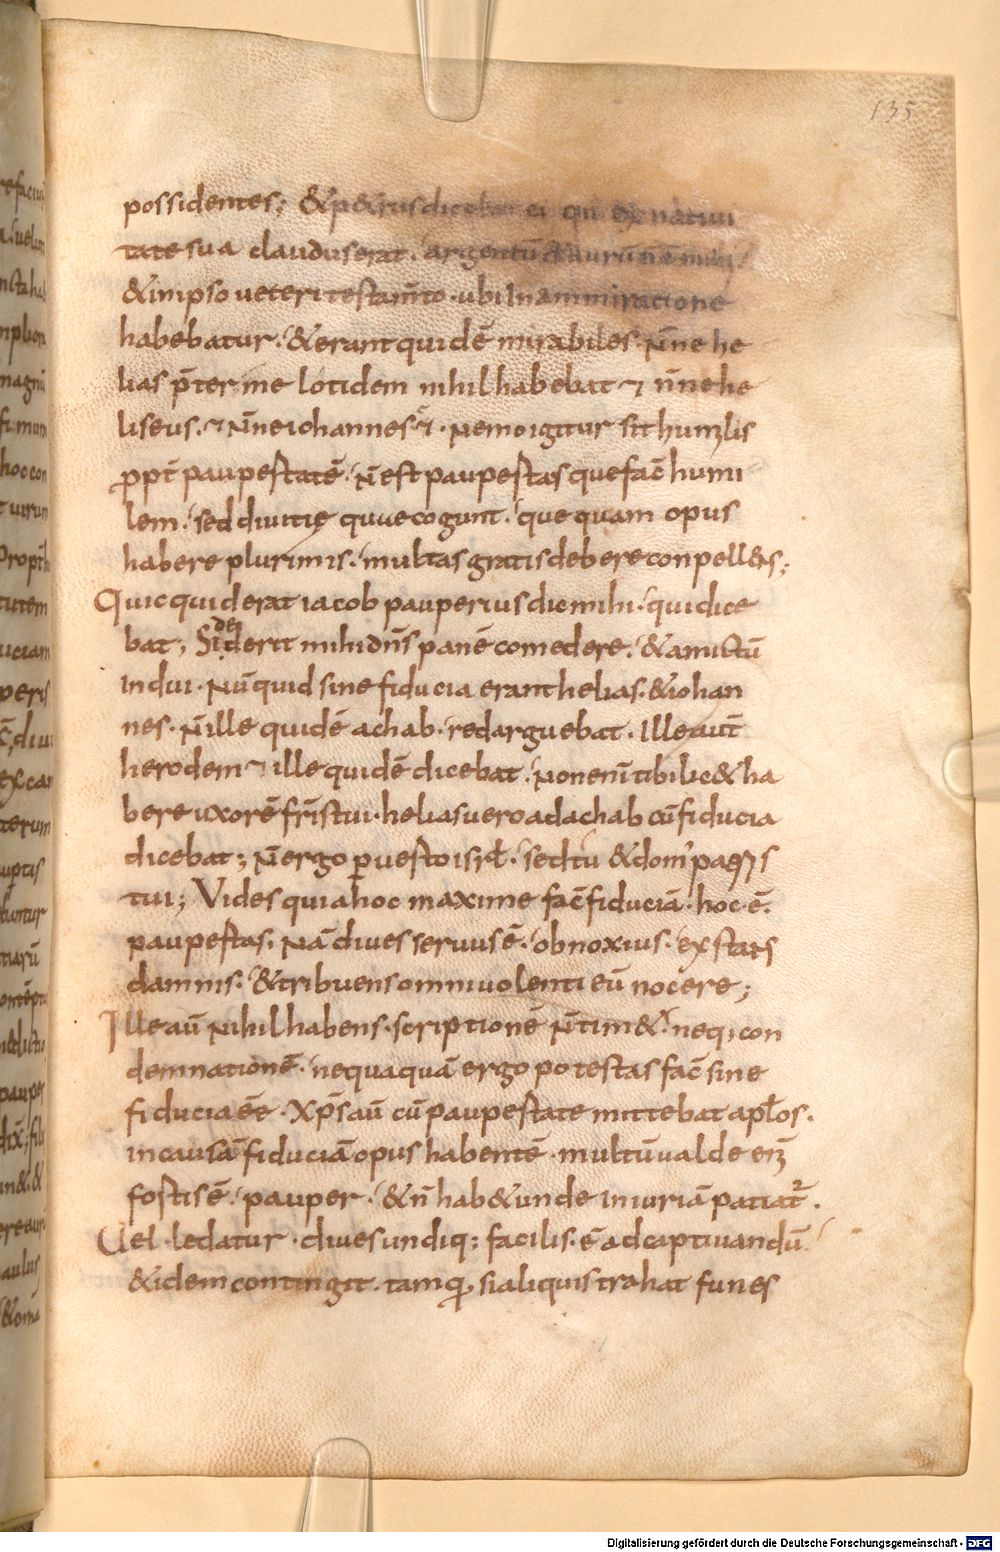 135
possidentes; &p&rus dicebat ei qui ex natiui
tate sua claudus erat. argentū & aurū n̄ ē mihi.
& in ipso ueteri testam̄to. ubi in ammiracione
habebatur. & erant quidē mirabiles. N̄ne he
lias p̄ter me lotidem nihil habebat ⁊ n̄ne he
liseus. ⁊ N̄ne iohannes ⁊. Nemo igitur sit humilis
ꝓpt̄ paupestatē. N̄ est paupestas que fac̄ humi
lem. sed diuitię quue cogunt. que quam opus
habere plurimis. multas gratis debere conpell&is;
Quic quid erat iacob pauperius dic mihi. qui dice
bat; Si dederit mihi dn̄s panē comedere. & amictū
indui. Nū quid sine fiducia erant helias. & iohan
nes. N̄ ille quidē achab. redarguebat. Ille aut̄
herodem ⁊ ille quidē dicebat. Non enī tibi lic& ha
bere uxorē fr̄is tui. helias uero ad achab cū fiducia
dicebat; N̄ ergo ꝑuesto isrl̄. sed tu & dom' patris
tui; Vides quia hoc maxime fac̄ fiduciā. hoc ē.
paupestas. Nā diues seruus ē. obnoxius. existens
damnis. & tribuens omni uolenti eū nocere;
Ille aū nihil habens. scriptionē n̄ tim&. neq; con
demnationē. nequaquā ergo potestas fac̄ sine
fiducia eē. Xp̄s aū cū paupestate mittebat apl̄os.
in causā fiduciā opus habentē. multū ualde eni
fostis ē. pauper. & n̄ hab& unde iniuriā patiat̄.
Uel ledatur. diues undiq; facilis. ē ad captiuandū
& idem contingit. tamq̄ si aliquis trahat funes
Digitalisierung gefördert durch die Deutsche Forschungsgemeinschaft - DFG